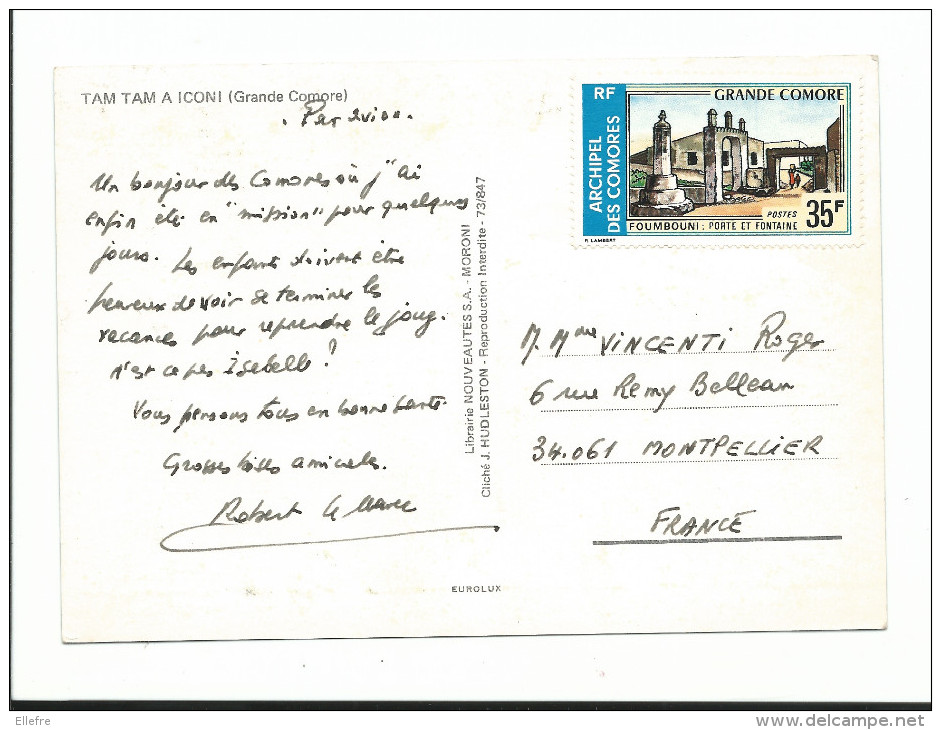 TAM TAM A ICONI (Grande Comore)
. Par avion.
Un bonjour des Comores où j'ai
enfin été en "mission" pour quelques
jours. Les enfants doivent être
heureux de voir se terminer les
vacances pour reprendre le joug.
N'est ce pas Isabelle ?
Vous pensons tous en bonne santé.
Grosses billes amicales.
Robert Le
Librairie NOUVEAUTES S.A. - MORONI
Cliché J. HUDLESTON - Reproduction Interdite - 73/847
EUROLUX
RF
ARCHIPEL
DES COMORES
GRANDE COMORE
POSTES
35F
FOUMBOUNI : PORTE ET FONTAINE
P. LAMBERT
M. Mme VINCENTI Roger
6 rue Remy Belleau
34.061 MONTPELLIER
FRANCE
Ellefre
delcampe.net